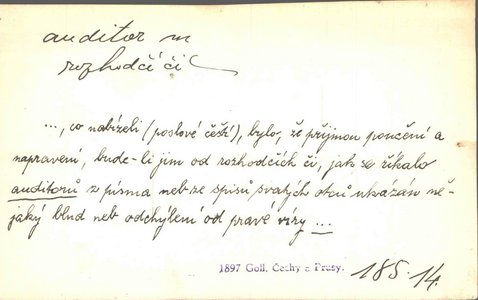 auditor m
rozhodčí či
..., co nabízeli (poslové čeští), bylo, že přijmou poučení a
napravení, bude-li jim od rozhodčích či, jak se říkalo
auditorů z písma neb ze spisů svatých otců ukázán ně-
jaký blud neb odchýlení od pravé víry ...
1897 Goll, Čechy a Prusy. 185.14.